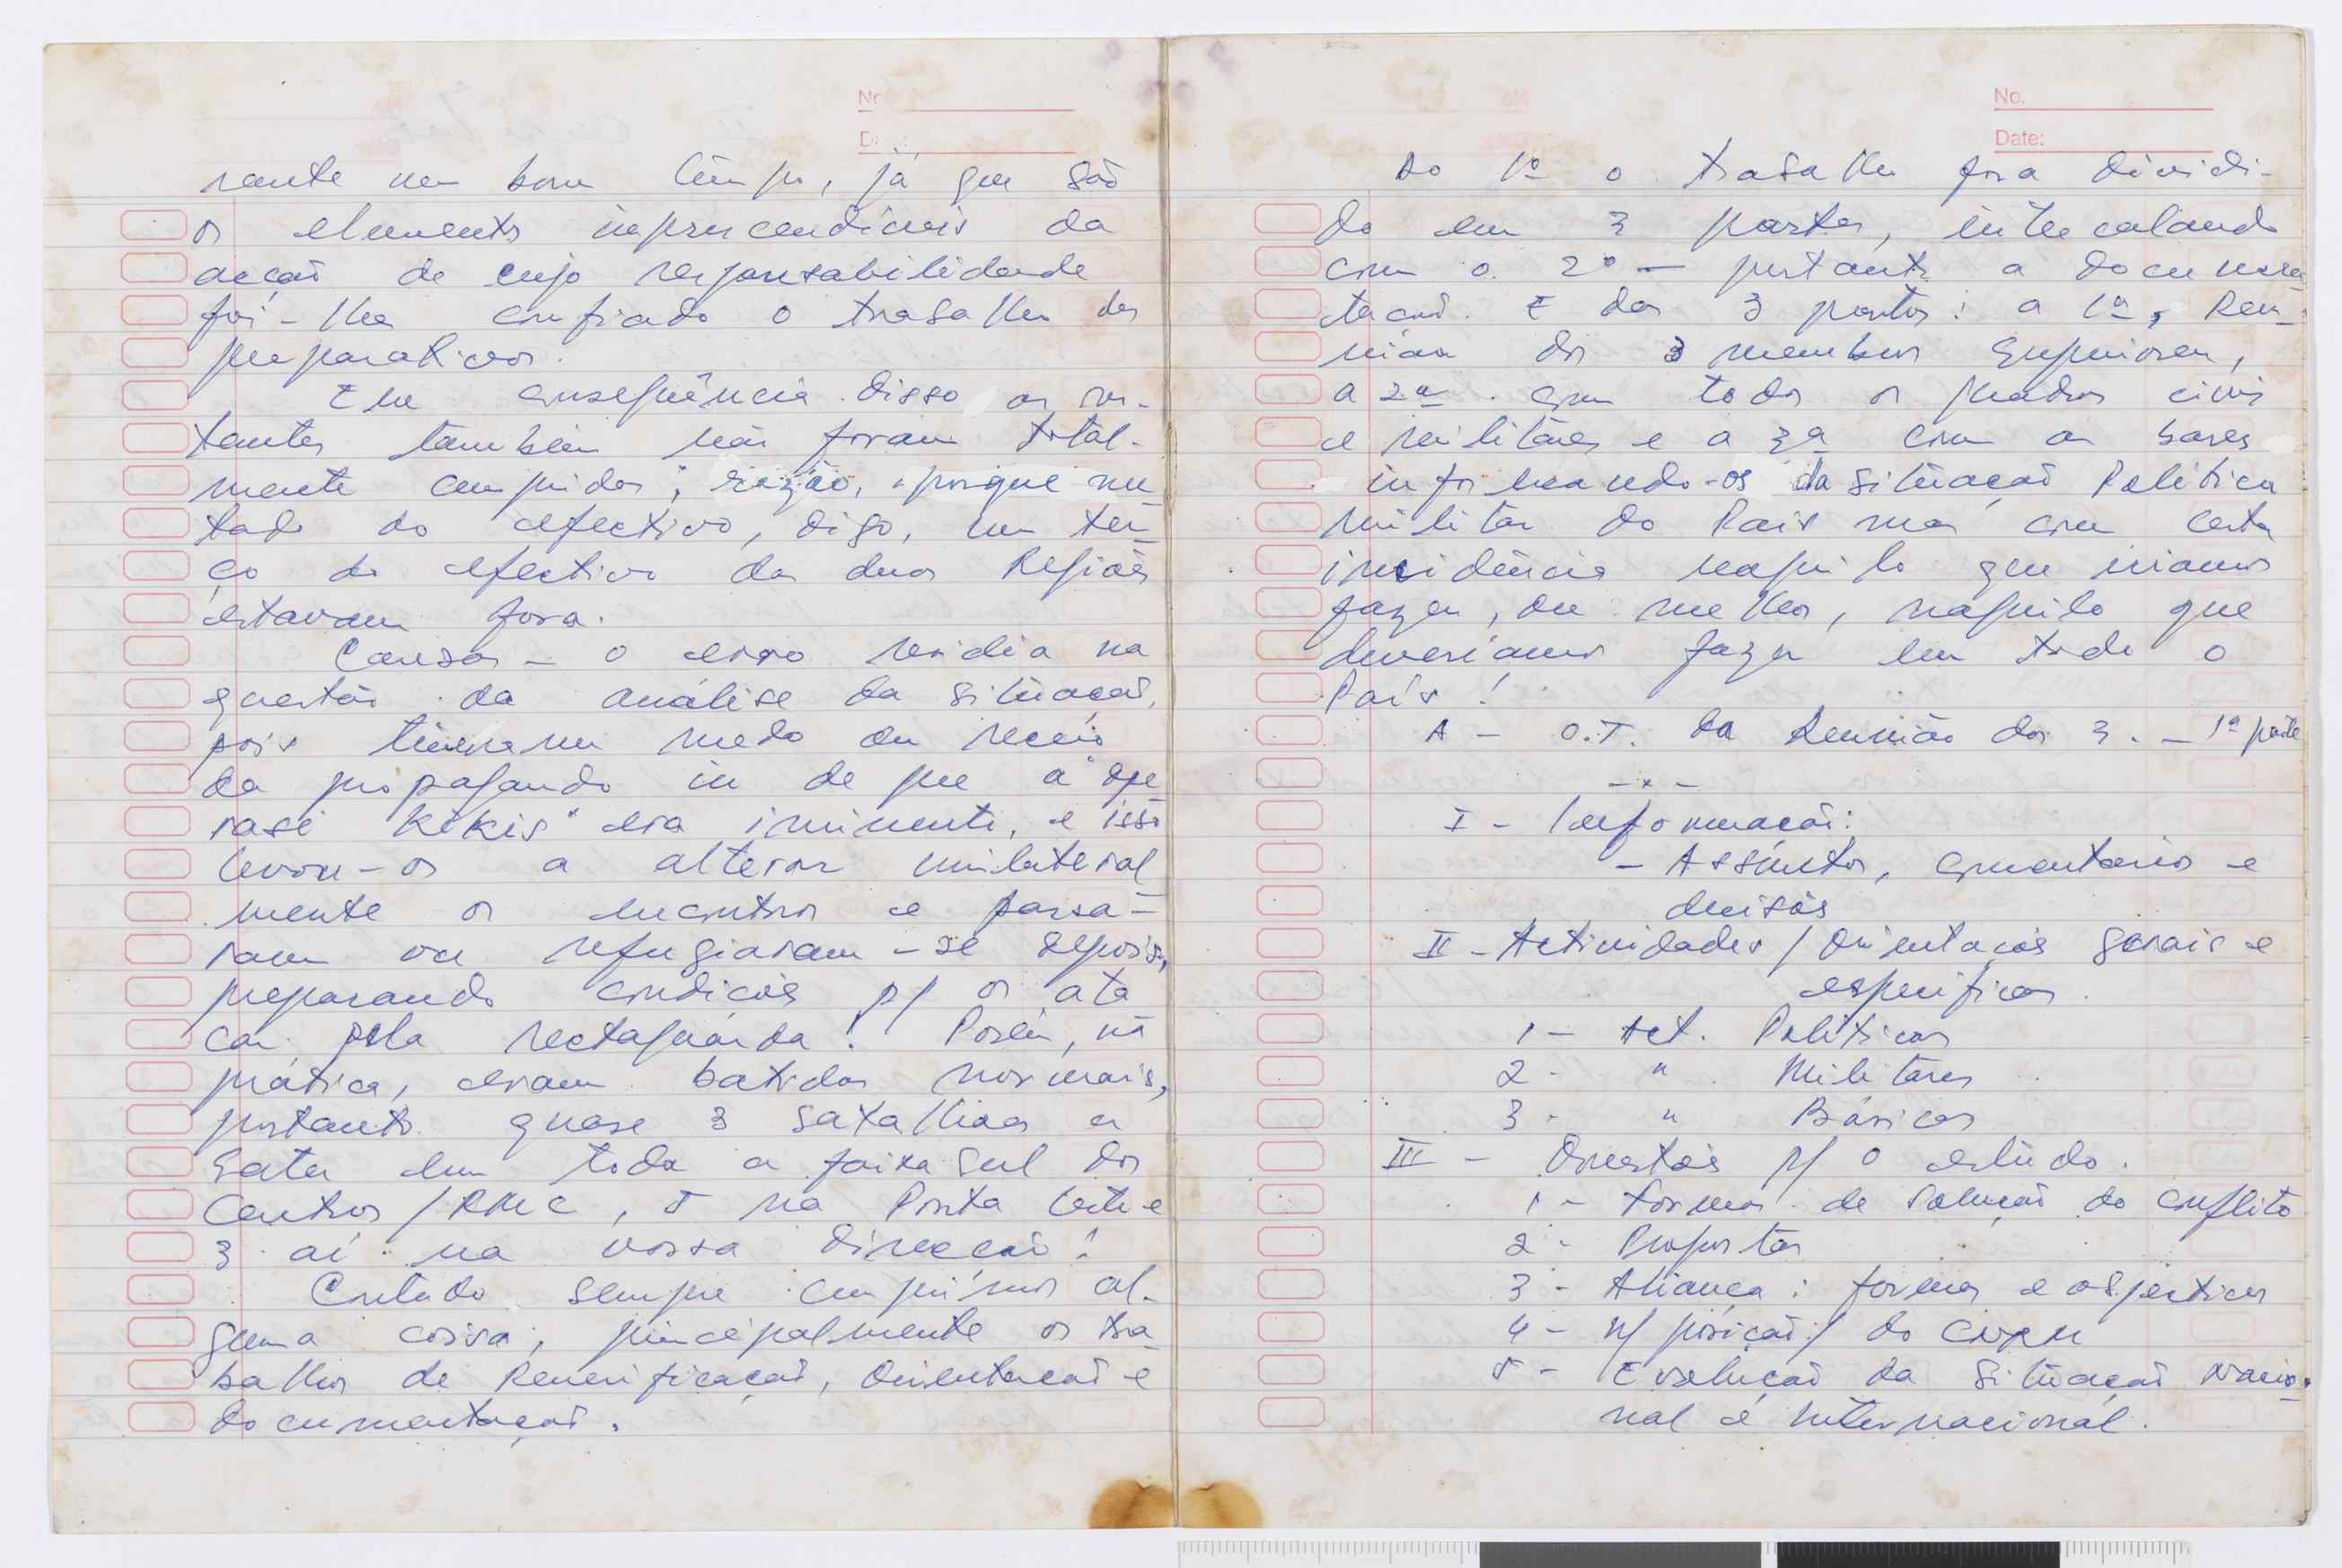 rante um bom têmpo, já que são
os elementos imprescendíveis da
acção de cujo responsabilidade
foi-lhes confiado o trabalho dos
preparativos.
Em consequência disso os res-
tantes também não foram total-
mente cumpridos; razão, porque me
tade do efectivo, digo, um ter-
ço do efectivo das duas Regiões
estavam fora.
Causas - o erro residia na
questão da análise da situação,
pois tiveram medo ou receio
da propaganda in de que a "ope
rasi Kikis" era iminente, e isso
levou-os a alterar unilateral-
mente os encontros e passa-
ram ou refugiaram-se depois,
preparando condições p/ os ata
car pela rectaguarda! Porém, na
prática, eram batidas normais,
portanto quase 3 batalhões a
bater em toda a faixa sul dos
Centros/RMC, 5 na Ponta Leste e
3 aí na vossa direcção!
Contudo sempre cumprimos al-
guma coisa, principalmente os tra
balhos de Reunificação, Orientação e
documentação.
Nr
D
No.
Date:
Do 1º o trabalho fora dividi-
do em 3 partes, intercalando
com o 2º - portanto a documen-
tação. E das 3 partes: a 1ª, Reu-
nião dos 3 membros superiores,
a 2ª com todos os quadros civis
e militares e a 3ª com as bases
informando-os da situação Política
militar do País mas com certa
incidência naquilo que iríamos
fazer, ou melhor, naquilo que
deveríamos fazer em todo o
País!
A - O.T. da Reunião dos 3. - 1ª parte
-x-
I - Informação:
- Assuntos, comentários e
decisões
II - Actividades/Orientações gerais e
específicas.
1 - Act. Políticas
2 - " Militares
3 - " Básicas
III - Questões p/ o estudo.
1 - Formas de solução do conflito
2 - Propostas
3 - Aliança: formas e objectivos
4 - n/ posição/ do CNRM
5 - Evolução da situação nacio-
nal e internacional.